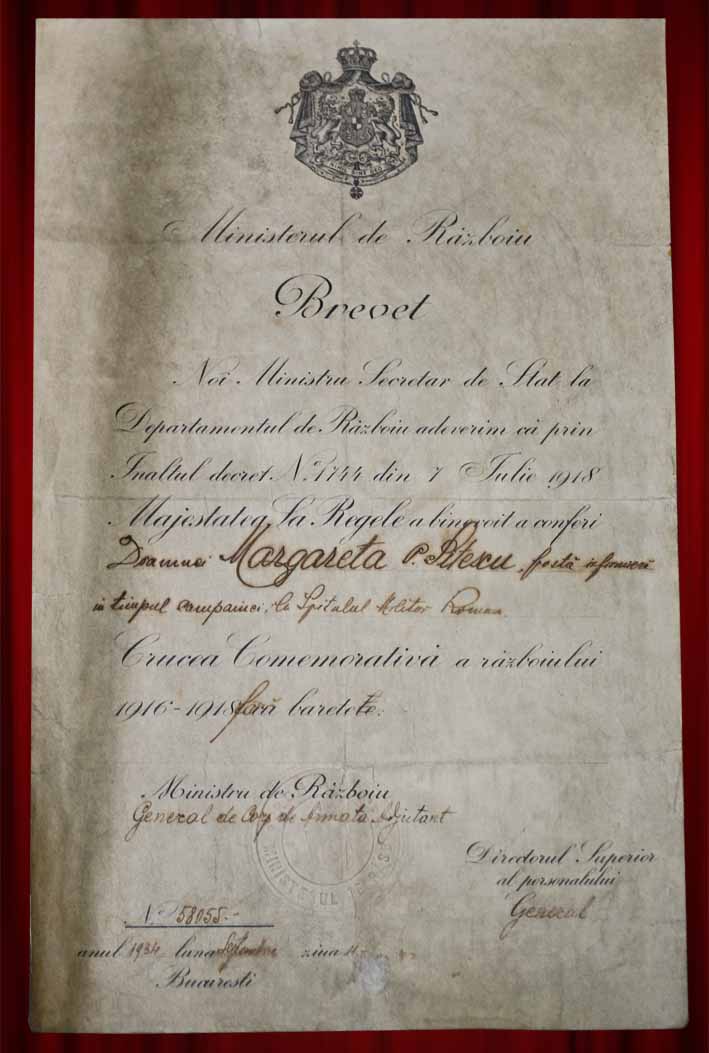 Ministerul de Războiu
Brevet
Noi Ministru Secretar de Stat la
Departamentul de Războiu adeverim că prin
Inaltul decret No. 1744 din 7 Iulie 1918
Majestatea Sa Regele a binevoit a conferi
Doamnei Margareta P. , fostă infirmieră
in timpul campaniei, la Spitalul Militar Roman
Crucea Comemorativă a războiului
1916-1918 fără baretete.
Ministru de Războiu
General de Corp de Armată Adjutant
MINISTERUL
Directorul Superior
al personalului
General
No. 58055.-
anul 1934 luna Septembrie ziua
Bucuresti